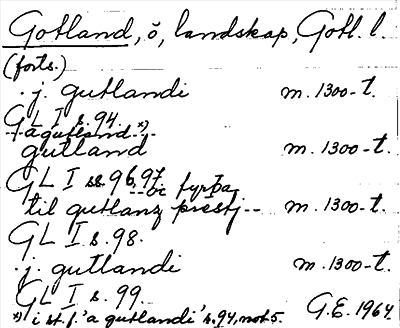 Gotland, ö, landskap, Gotl. l.
(forts.)
· j. gutlandi m. 1300-t.
GL I s. 94.
--a gutland--*)
gutland m. 1300-t.
GL I ss. 96, 97.
--oc fyrþa
til gutlanz prestj-- m. 1300-t.
GL I s. 98.
· j. gutlandi m. 1300-t.
GL I s. 99.
*) i st. f. 'a gutlandi' s. 94, not 5. G.E. 1964.